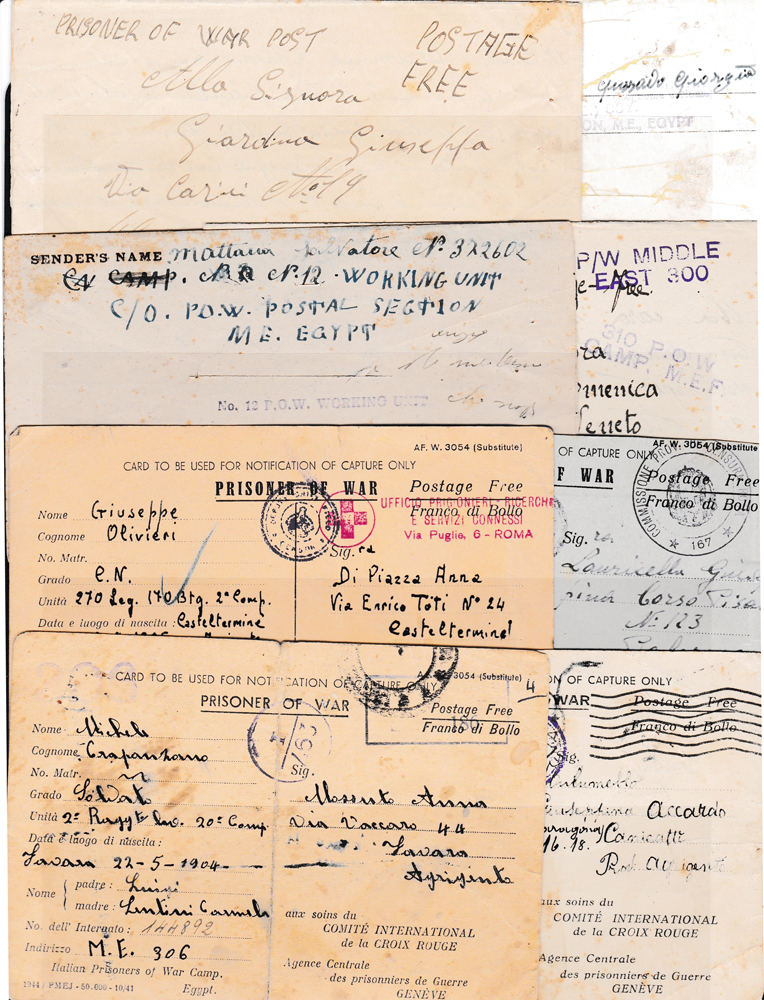 PRISONER OF WAR POST
POSTAGE
FREE
Alla Signora
Giardina Giuseppa
Via Carini N° 19
Giorgio
ON, M.E, EGYPT
SENDER'S NAME Mattana Salvatore N. 322602
CAMP. N. 12 - WORKING UNIT
C/O. P.O.W. POSTAL SECTION
M.E. EGYPT
No. 12 P.O.W. WORKING UNIT
P/W MIDDLE
EAST 300
ge-free.
310 P.O.W
CAMP, M.E.F.
ora
omenica
Veneto
AF. W. 3054 (Substitute)
CARD TO BE USED FOR NOTIFICATION OF CAPTURE ONLY
PRISONER OF WAR
Postage Free
Franco di Bollo
UFFICIO PRIGIONIERI - RICERCHE
E SERVIZI CONNESSI
Via Puglie, 6 - ROMA
Nome Giuseppe
Cognome Olivieri
No. Matr.
Grado C.N.
Unità 270 Leg. 170 Btg. 2ª Comp.
Data e luogo di nascita: Casteltermine
Sig. ra
Di Piazza Anna
Via Enrico Toti N° 24
Casteltermini
AF. W. 3054 (Substitute
OF CAPTURE ONLY
F WAR
Postage Free
Franco di Bollo
167
Sig. ra
Lauricella
pina Corso Pisa
N. 123
3054 (Substitute)
CARD TO BE USED FOR NOTIFICATION OF CAPTURE ONLY
PRISONER OF WAR
Postage Free
Franco di Bollo
4
Nome Michele
Cognome Crapanzano
No. Matr.
Grado Soldato
Unità 2º Raggt. 20ª Comp.
Data e luogo di nascita:
Favara 22-5-1904
Nome
padre: Luigi
madre: Lentini Carmela
No. dell' Internato: 144892
Indirizzo M.E. 306
Italian Prisoners of War Camp.
1944 / PMEJ - 50.000 - 10/41
Egypt.
Sig.
Mossuto Anna
Via Vaccaro 44
Favara
Agrigento
aux soins du
COMITÉ INTERNATIONAL
de la CROIX ROUGE
Agence Centrale
des prisonniers de Guerre
GENÈVE
ON OF CAPTURE ONLY
WAR
Postage Free
Franco di Bollo
Sig.
Giuseppina Accardo
16.18. Canicatti
Prov. Agrigento
aux soins du
COMITÉ INTERNATIONAL
de la CROIX ROUGE
Agence Centrale
des prisonniers de Guerre
GENÈVE